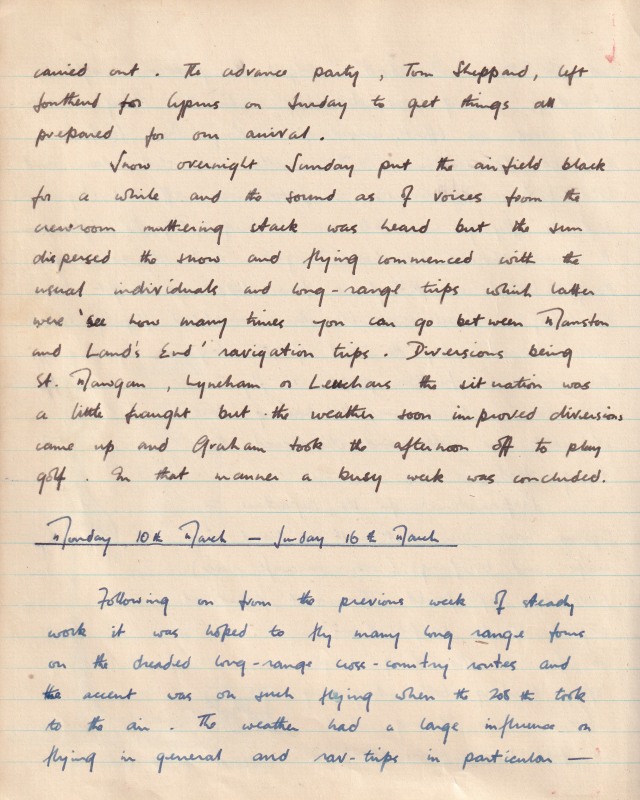 carried out. The advance party, Tom Sheppard, left
Southend for Cyprus on Sunday to get things all
prepared for our arrival.
Snow overnight Sunday put the airfield black
for a while and the sound as of voices from the
crewroom muttering stack was heard but the sun
dispersed the snow and flying commenced with the
usual individuals and long-range trips which latter
were 'see how many times you can go between Manston
and Land's End' navigation trips. Diversions being
St. Mawgan, Lyneham or Leuchars the situation was
a little fraught but the weather soon improved diversions
came up and Graham took the afternoon off to play
golf. In that manner a busy week was concluded.
Monday 10th March — Sunday 16th March
Following on from the previous week of steady
work it was hoped to fly many long range fours
on the dreaded long-range cross-country routes and
the accent was on such flying when the 208th took
to the air. The weather had a large influence on
flying in general and nav-trips in particular —